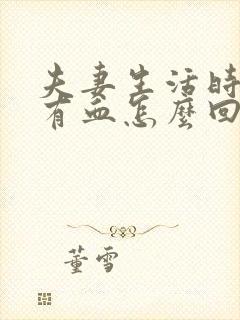 夫妻生活時
有血怎麼回
董雪